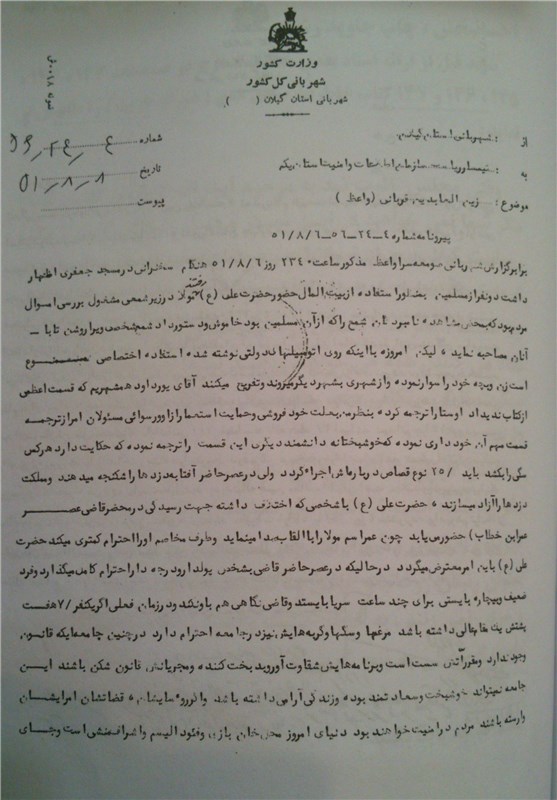 وزارت کشور
شهربانی کل کشور
شهربانی استان گیلان (        )
نمونه ۱۸
شماره ۴-۲۴-۵۶
تاریخ ۸-۸-۵۱
پیوست
از : شهربانی استان گیلان
به : تیمسار ریاست سازمان اطلاعات و امنیت استان یکم
موضوع : زین العابدین قربانی (واعظ)
پیرو نامه شماره ۴-۲۴-۵۶-۵۱/۸/۶
برابر گزارش شهربانی صومعه سرا واعظ مذکور ساعت ۲۳۴۰ روز ۵۱/۸/۶ هنگام سخنرانی در مسجد جعفری اظهار
داشت دو نفر از مسلمین بمنظور استفاده از بیت المال حضور حضرت علی (ع) رفتند مولا در زیر شمعی مشغول بررسی اموال
مردم بود که بمحض مشاهده نامبردگان شمع را که از آن مسلمین بود خاموش و دستور داد شمع شخصی ویرا روشن تا با
آنان مصاحبه نماید لیکن امروزه با اینکه روی اتومبیلهای دولتی نوشته شده استفاده اختصاصی ممنوع
است زن و بچه خود را سوار نموده و از شهری بشهر دیگر میروند و تفریح میکنند آقای پور داود همشهریم که قسمت اعظمی
از کتاب ندیداد اوستا را ترجمه کرده بنظر من بعلت خود فروشی و حمایت استعمار از او و رسوائی مسئولان امر از ترجمه
قسمت مهم آن خود داری نموده که خوشبختانه دانشمند دیگری این قسمت را ترجمه نموده که حکایت دارد هر کس
سگی را بکشد باید ۲۵ نوع قصاص درباره اش اجرا گردد ولی در عصر حاضر آفتابه دزدها را شکنجه میدهند و مملکت
دزدها را آزاد میسازند حضرت علی (ع) با شخصی که اختلاف داشته جهت رسیدگی در محضر قاضی عصر
عمر ابن خطاب) حضور می یابد چون عمر اسم مولا را با القاب صدا مینماید و طرف مخاصم او را احترام کمتری میکند حضرت
علی (ع) باین امر معترض میگردد در حالیکه در عصر حاضر قاضی بشخص پولدار و درجه دار احترام کامل میگذارد و فرد
ضعیف و بیچاره بایستی برای چند ساعت سر پا بایستد و قاضی نگاهی هم باو نکند و در زمان فعلی اگر یکنفر ۷/هفت
پشتش یک مقام عالی داشته باشد مرغها و سگها و گربه هایش نیز در جامعه احترام دارد در چنین جامعه ایکه قانون
وجود ندارد و مقرراتش سست است و برنامه هایش شقاوت آور و بدبخت کننده و مجریانش قانون شکن باشند این
جامعه نمیتواند خوشبخت و سعادتمند بوده و زندگی آرامی داشته باشد و اگر روسایشان و قضاتشان امرایشان
وارسته باشند مردم در امنیت خواهند بود دنیای امروز محل خان بازی و فئودالیسم و اشراف منشی است و جای